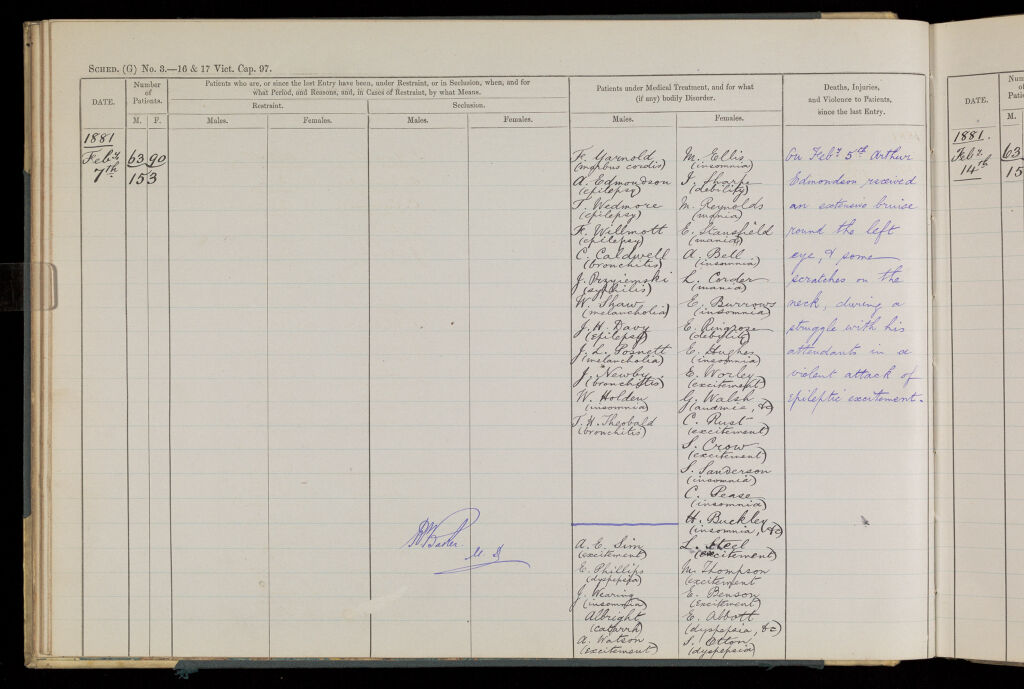 SCHED. (G) No. 3.—16 & 17 Vict. Cap. 97.
DATE.
Number
of
Patients.
M. F.
Patients who are, or since the last Entry have been, under Restraint, or in Seclusion, when, and for
what Period, and Reasons, and, in Cases of Restraint, by what Means.
Restraint.
Seclusion.
Males.
Females.
Males.
Females.
Patients under Medical Treatment, and for what
(if any) bodily Disorder.
Males.
Females.
Deaths, Injuries,
and Violence to Patients,
since the last Entry.
1881
Feby. 63 90
7th 153
F. Yarnold
(morbus cordis)
A. Edmondson
(epilepsy)
T. Wedmore
(epilepsy)
F. Willmott
(epilepsy)
C. Caldwell
(bronchitis)
J. Przyiemski
(syphilis)
W. Shaw
(melancholia)
J. H. Davy
(epilepsy)
J. L. Posnett
(melancholia)
J. Newby
(bronchitis)
W. Holden
(insomnia)
T. H. Theobald
(bronchitis)
A. E. Sim
(excitement)
E. Phillips
(dyspepsia)
J. Wearing
(insomnia)
Albright
(catarrh)
A. Watson
(excitement)
M. Ellis
(insomnia)
I. Sharpe
(debility)
M. Reynolds
(mania)
E. Stansfield
(mania)
A. Bell
(insomnia)
L. Corder
(mania)
E. Burrows
(insomnia)
E. Ringrose
(debility)
E. Hughes
(insomnia)
E. Worley
(excitement)
G. Walsh
(anæmia, &c)
C. Rust
(excitement)
S. Crow
(excitement)
S. Sanderson
(insomnia)
C. Pease
(insomnia)
H. Buckley
(insomnia, &c)
L. Steel
(excitement)
M. Thompson
(excitement
E. Benson
(excitement)
E. Abbott
(dyspepsia, &c)
S. Etton
(dyspepsia)
On Feby. 5th Arthur
Edmondson received
an extensive bruise
round the left
eye, & some
scratches on the
neck, during a
struggle with his
attendants in a
violent attack of
Epileptic excitement.
Baker
M.D
DATE.
M.
1881.
Feby. 63
14th 15